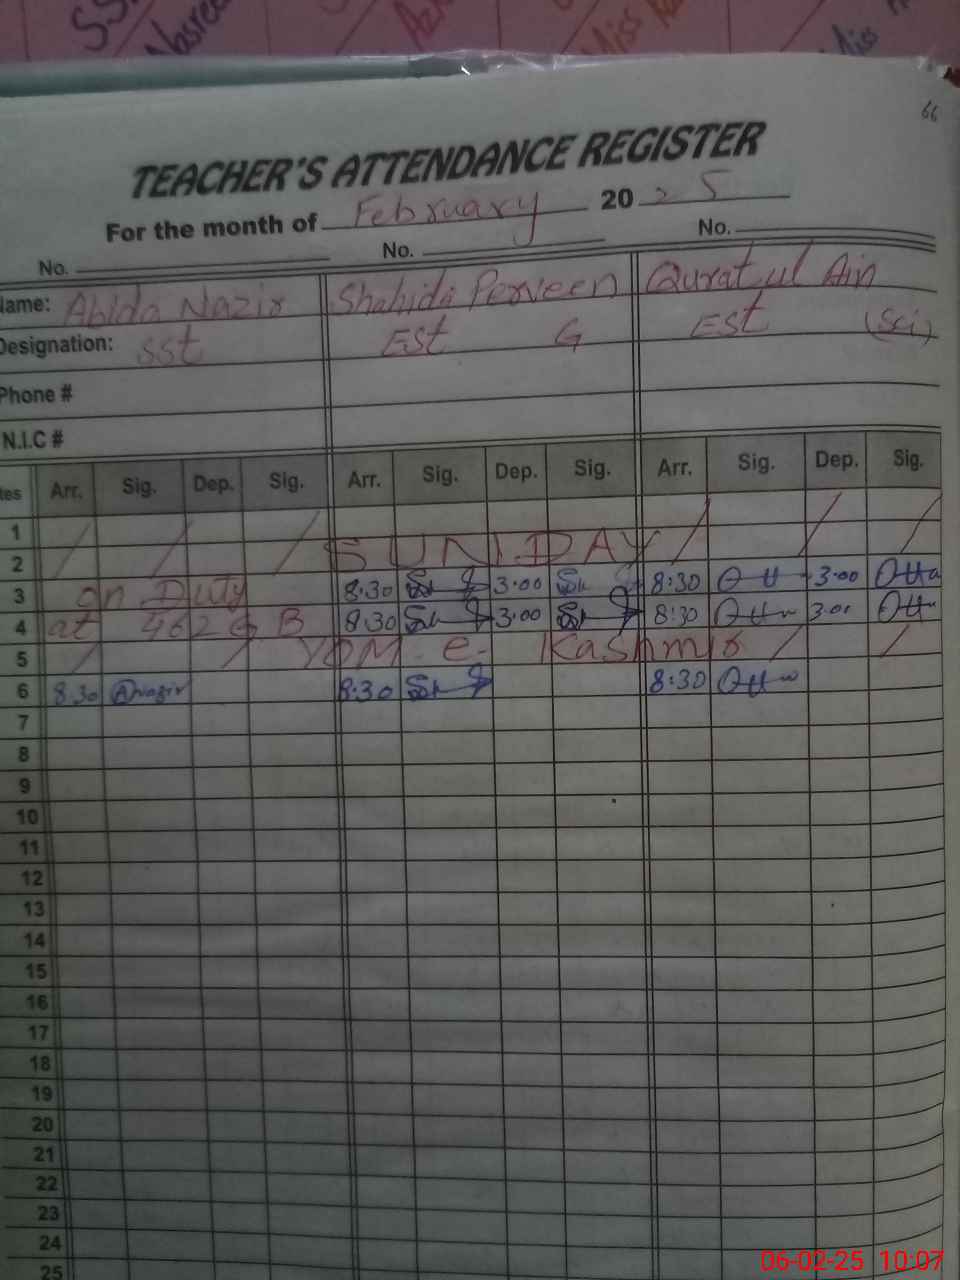 66
TEACHER'S ATTENDANCE REGISTER
For the month of February 2025
No. No. No.
Name: Abida Nazir Shahida Perveen Qurat ul Ain
Designation: SST EST G EST (Sci)
Phone #
N.I.C #
Arr. Sig. Dep. Sig. Arr. Sig. Dep. Sig. Arr. Sig. Dep. Sig.
1
2 SUNDAY
3 On Duty 8:30 3:00 8:30 3:00
4 at 462 G B 8:30 3:00 8:30 3:00
5 YOM e Kashmir
6 8:30 Anazir 8:30 8:30
7
8
9
10
11
12
13
14
15
16
17
18
19
20
21
22
23
24
25
06-02-25 10:07